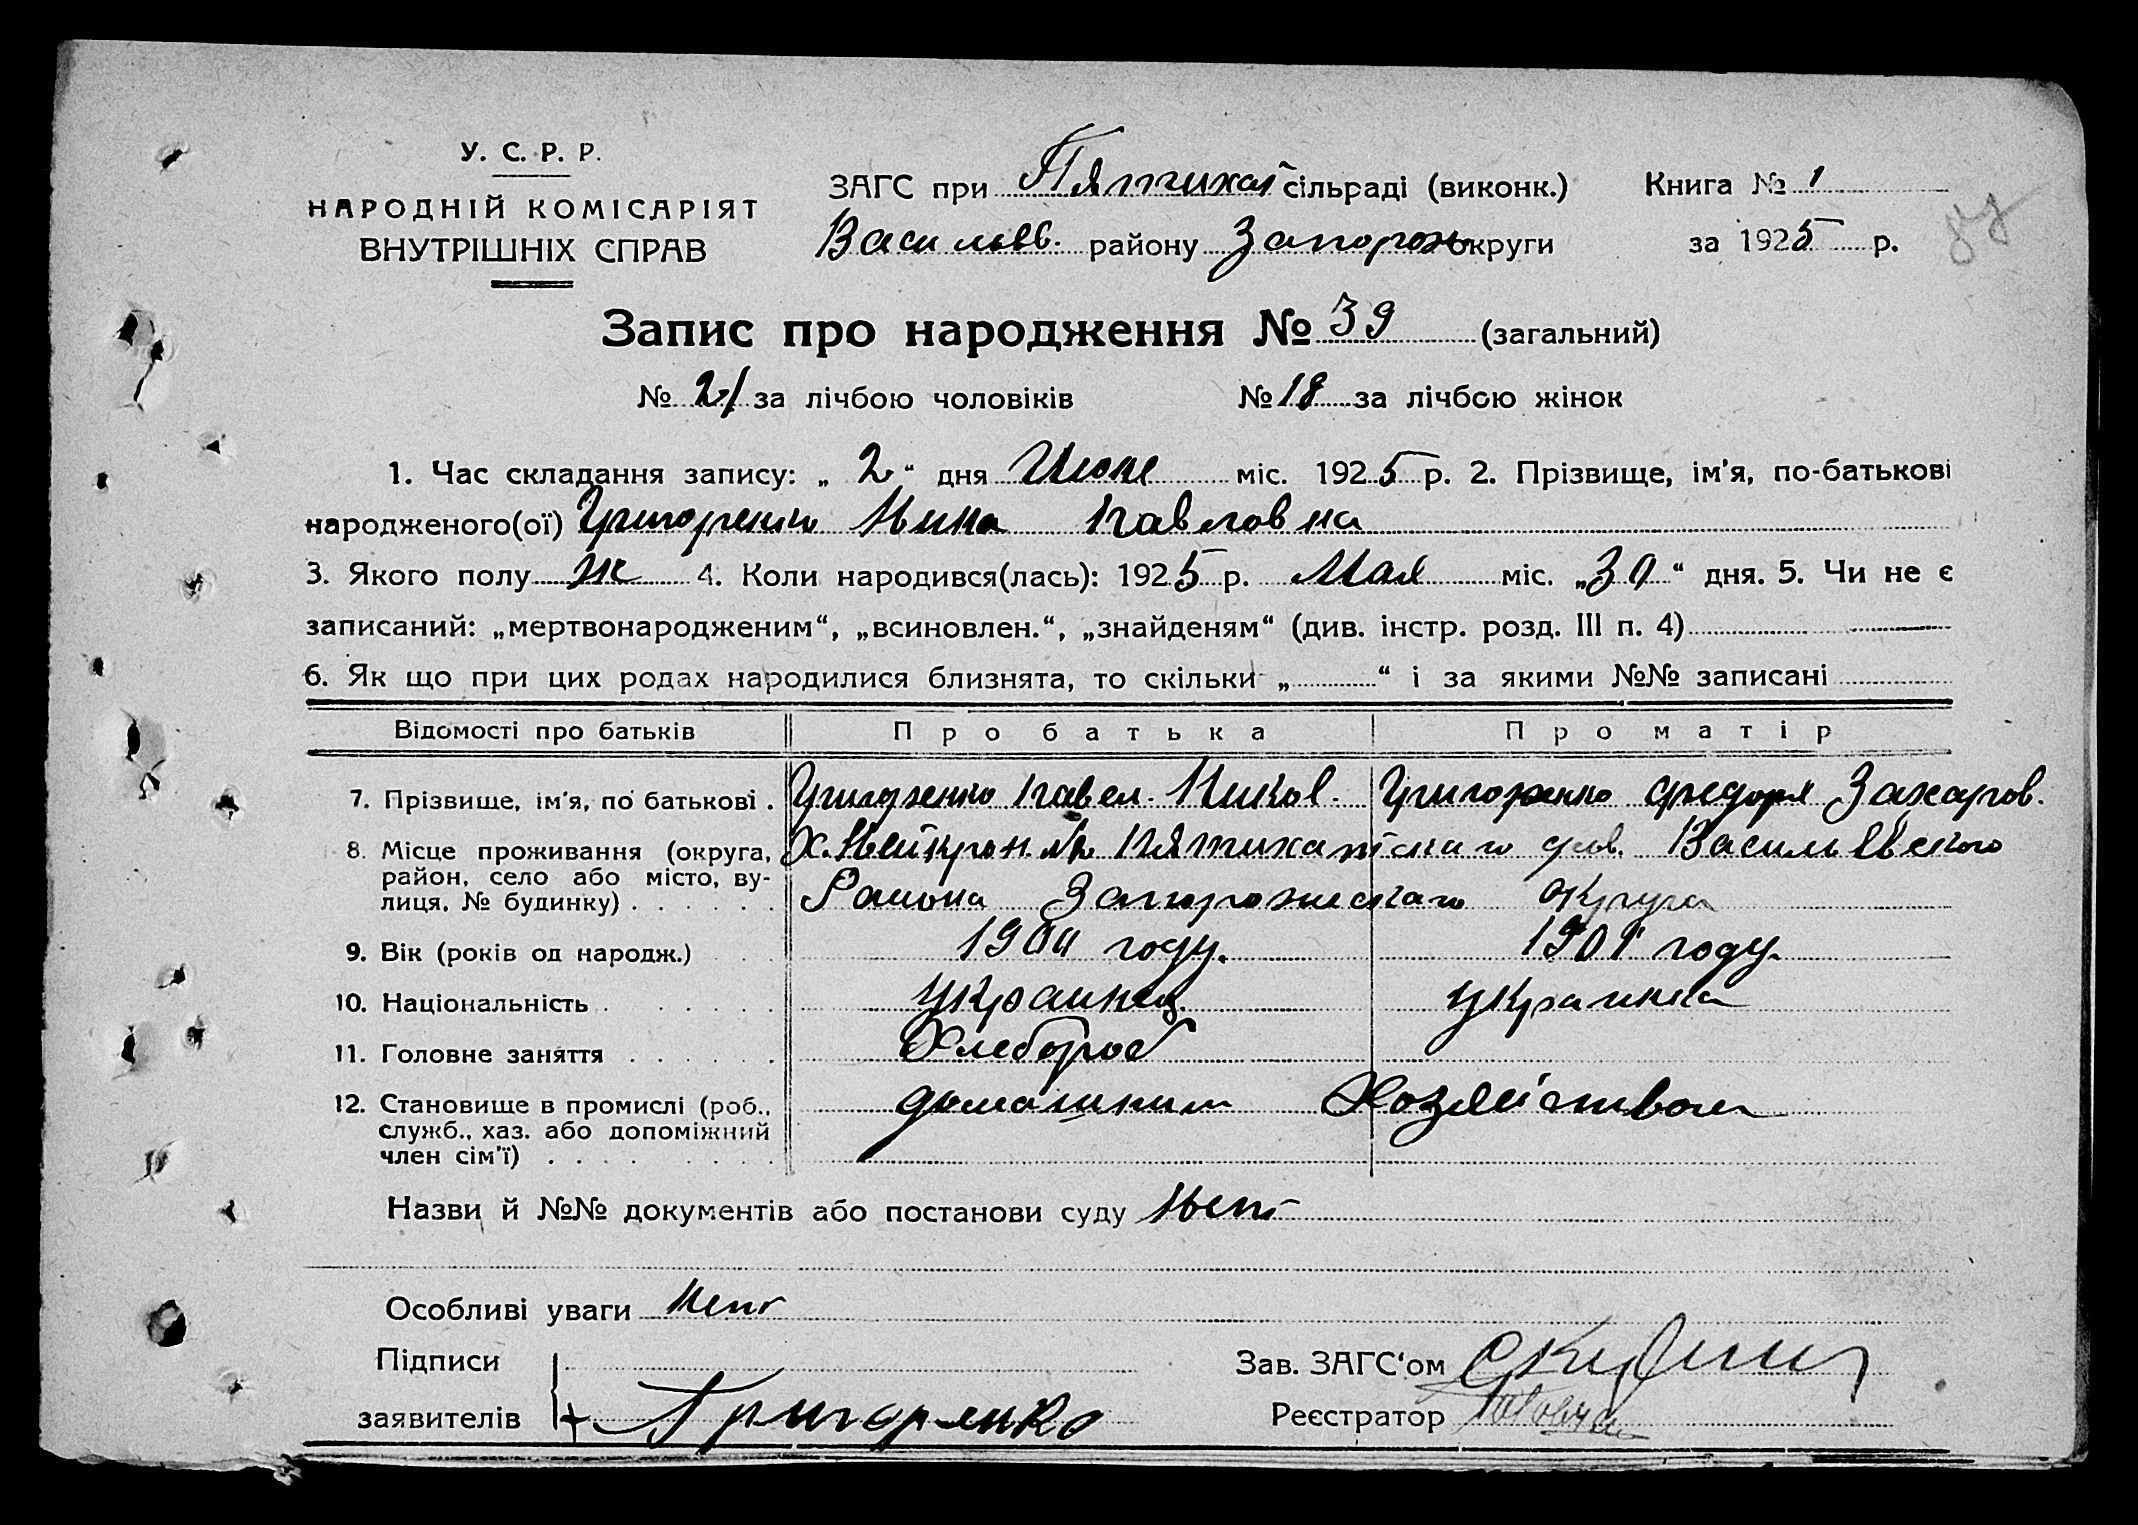 У. С. Р. Р.
НАРОДНІЙ КОМІСАРІЯТ
ВНУТРІШНІХ СПРАВ
ЗАГС при Пятихат сільраді (виконк.)
Васильев. району Запорож округи
Книга № 1
за 1925 р.
Запис про народження № 39 (загальний)
№ 21 за лічбою чоловіків № 18 за лічбою жінок
1. Час складання запису: „ 2 “ дня Июня міс. 1925 р. 2. Прізвище, ім'я, по-батькові
народженого(ої) Григоренко Нина Павловна
3. Якого полу ж 4. Коли народився(лась): 1925 р. Мая міс. „30“ дня. 5. Чи не є
записаний: „мертвонародженим“, „всиновлен.“, „знайденям“ (див. інстр. розд. III п. 4)
6. Як що при цих родах народилися близнята, то скільки „ “ і за якими №№ записані
Відомості про батьків Про батька Про матір
7. Прізвище, ім'я, по батькові . Григоренко Павел Никол. Григоренко Федоря Захаров.
8. Місце проживання (округа, Х. Нейкрон. Пятихатского Васильевского
район, село або місто, ву-
лиця, № будинку) . . . . . . Района Запорожского округа
9. Вік (років од народж.) 1904 году. 1901 году.
10. Національність . украинец украинка
11. Головне заняття . . . . . . Хлебороб
12. Становище в промислі (роб., домашним Хозяйством
служб., хаз. або допоміжний
член сім'ї) . . . .
Назви й №№ документів або постанови суду Нет
Особливі уваги Нет
Підписи
заявителів + Григоренко
Зав. ЗАГС‘ом
Реєстратор